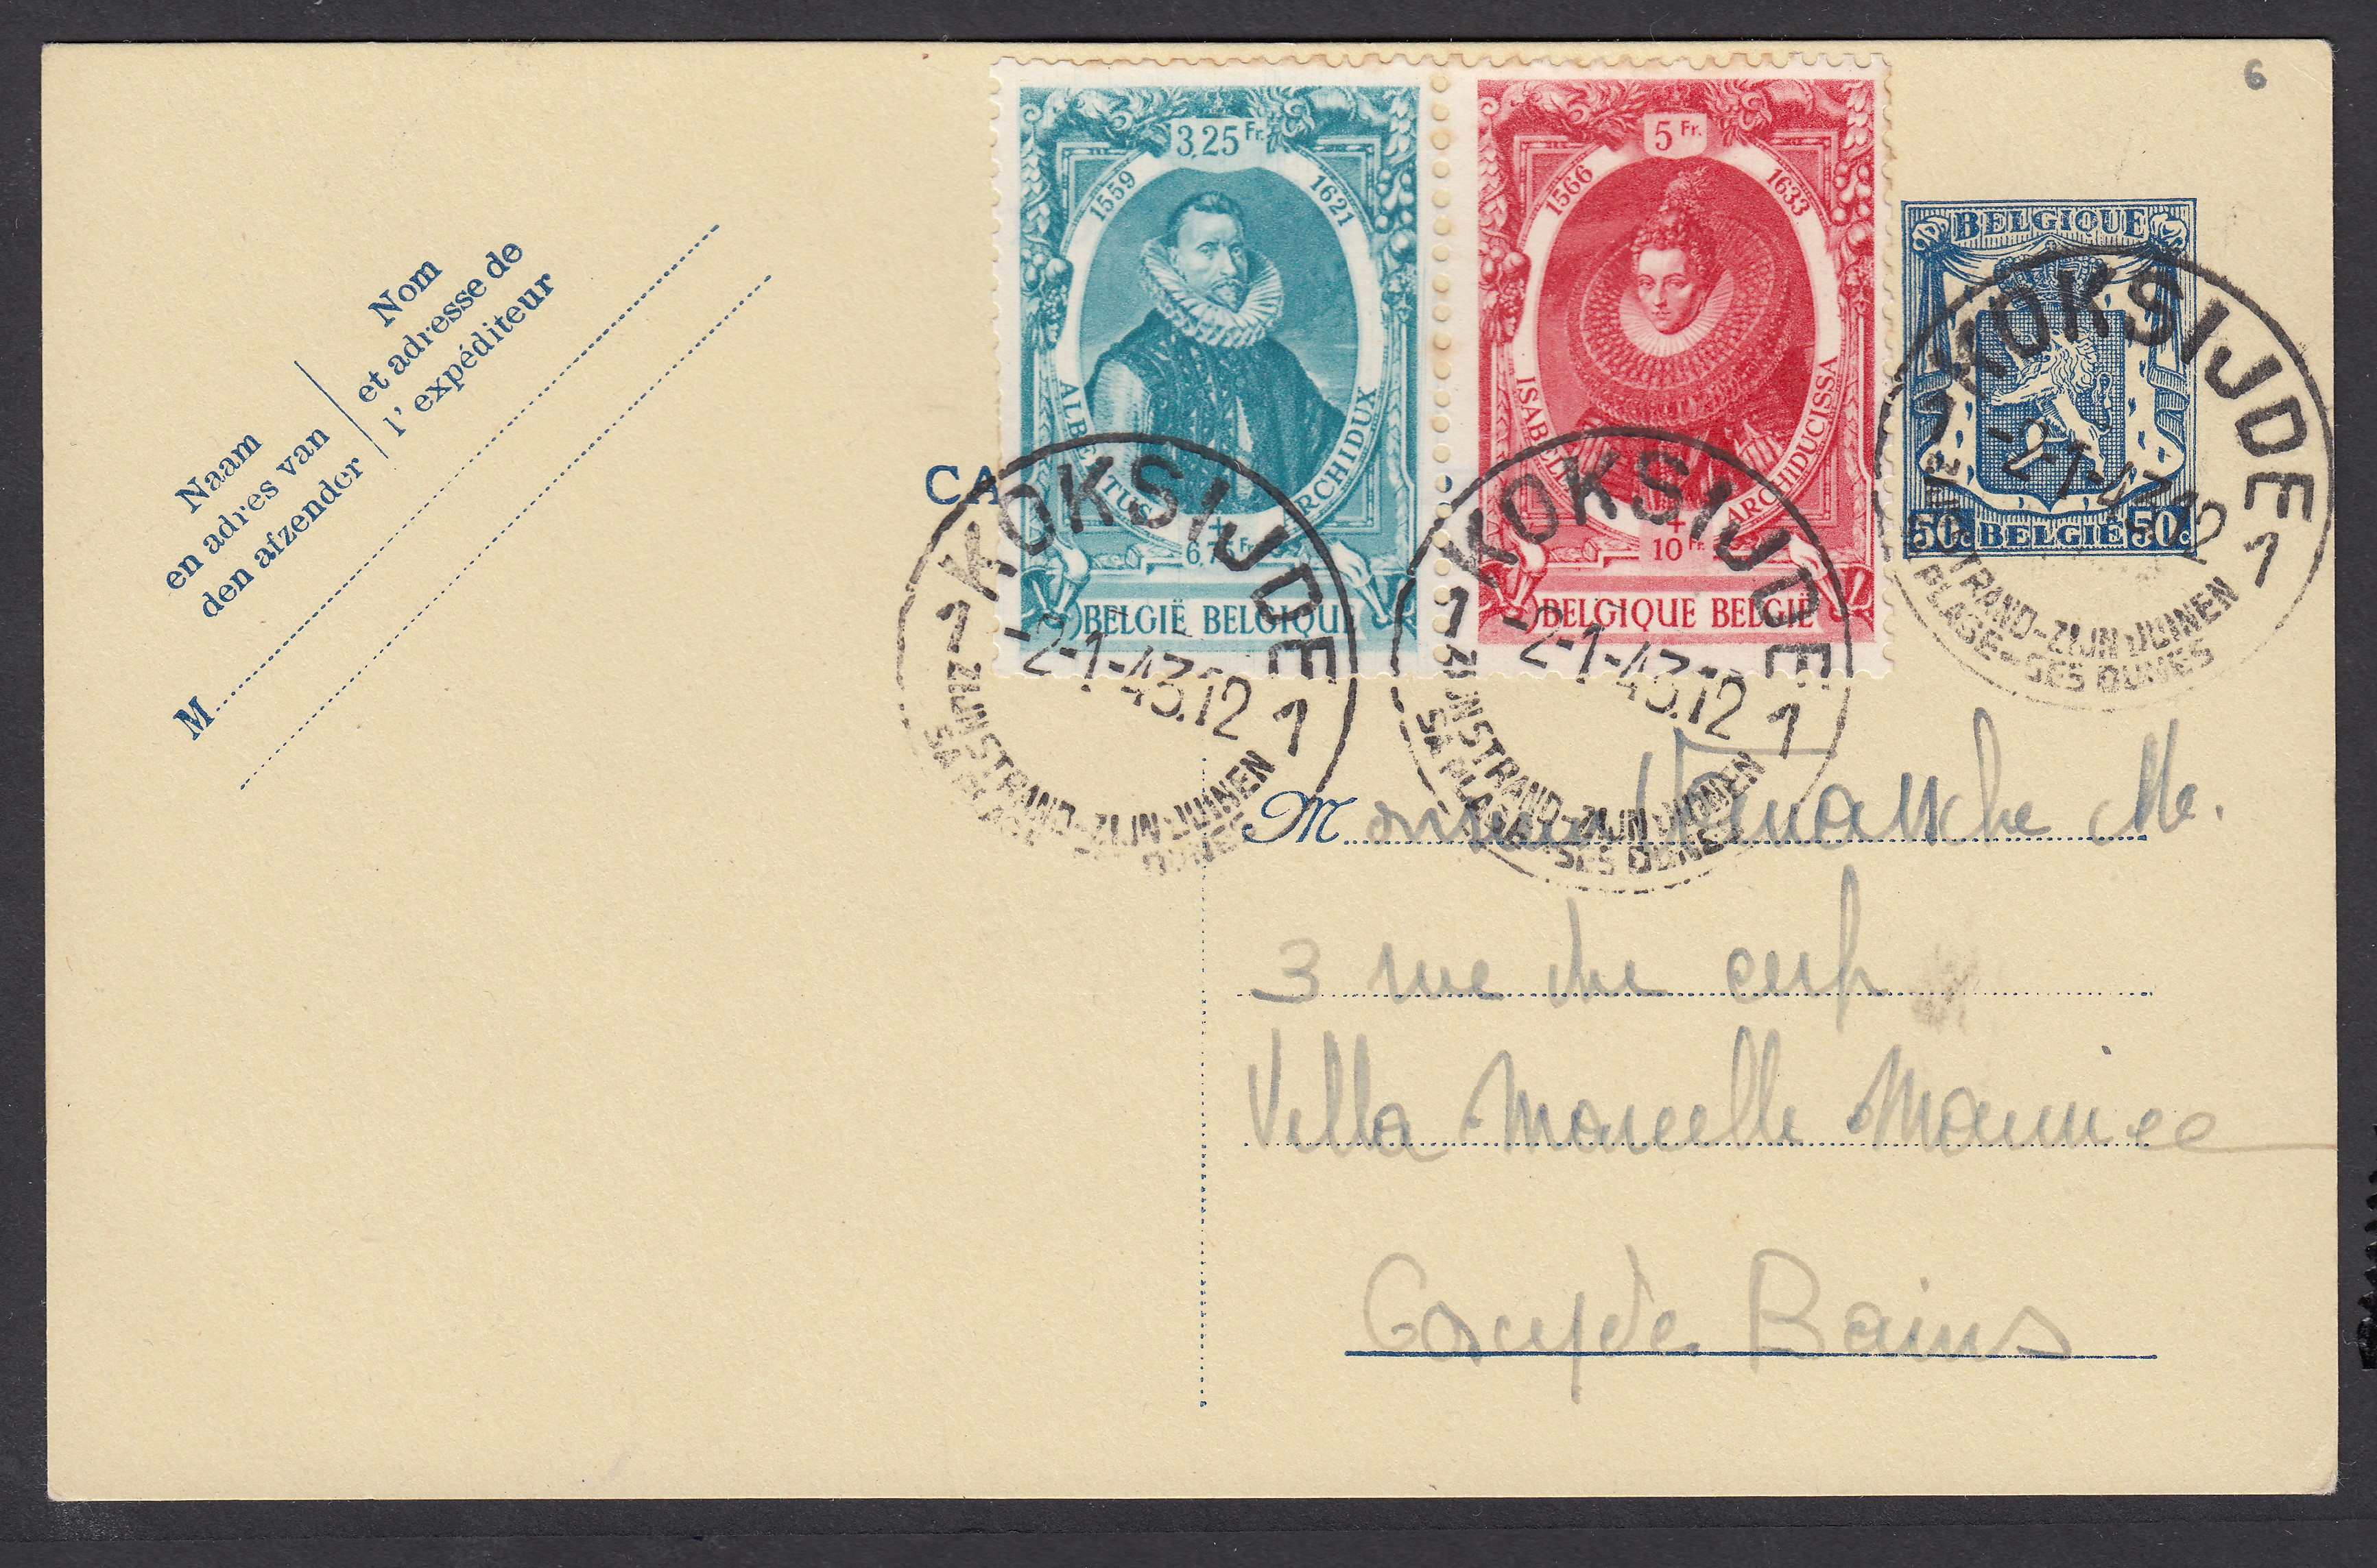 6
3,25 Fr.
1559 1621
ALBERTUS ARCHIDUX
+
6,7 Fr
BELGIË BELGIQUE
5 Fr.
1566 1633
ISABELLA ARCHIDUCISSA
+
10 Fr
BELGIQUE BELGIË
BELGIQUE
50c BELGIË 50c
1 KOKSIJDE 1
-2-1-43.12
ZIJN STRAND-ZIJN DUINEN
SA PLAGE DUNES
1 KOKSIJDE 1
-2-1-43.12
ZIJN STRAND-ZIJN DUINEN
SA PLAGE-SES DUNES
1 KOKSIJDE 1
-2-1-43.12
STRAND-ZIJN DUINEN
PLAGE-SES DUNES
CA
Nom
et adresse de
l'expéditeur
Naam
en adres van
den afzender
M
Monsieur
3 rue du cerf
Villa Marcelle Maurice
Coxyde Bains